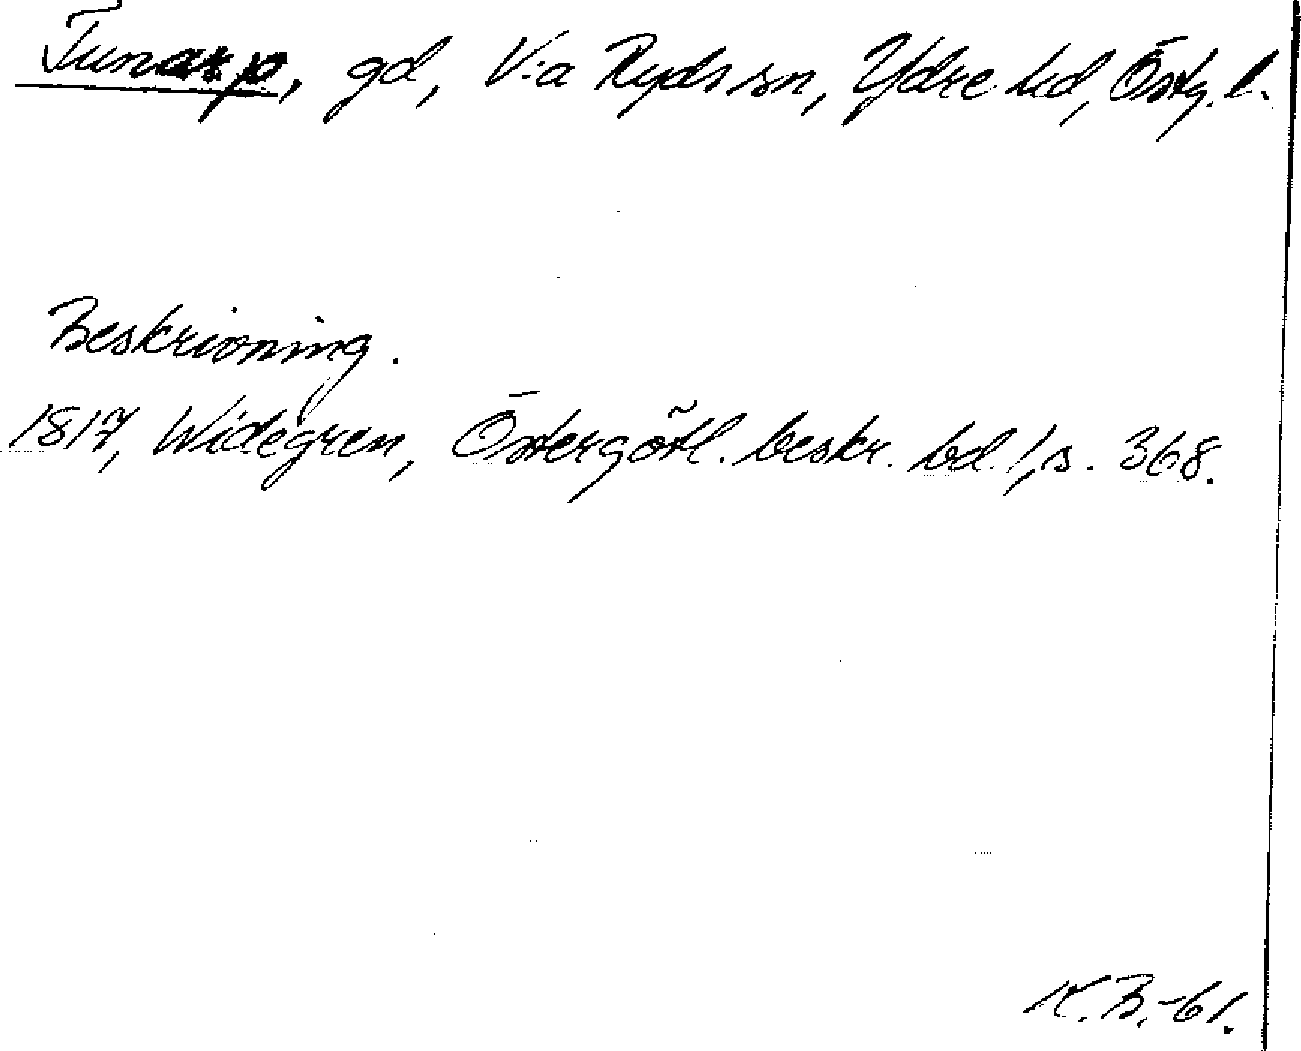 Tunarp, gd, V:a Ryds sn, Ydre hd, Östg. l.
Beskrivning.
1817, Widegren, Östergötl. beskr. bd. 1, s. 368.
K. B. -61.